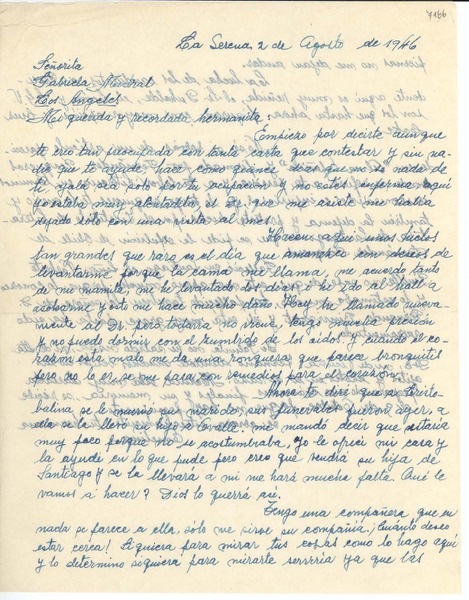 7166
La Serena 2 de Agosto de 1946
Señorita
Gabriela Mistral
Los Angeles
Mi querida y recordada hermanita:
Empiezo por decirte aunque
te creo tan preocupada con tanta carta que contestar y sin na-
die que te ayude, hace como quince días que no sé nada de
ti, ojalá sea solo por tu ocupación y no estés enferma, aquí
yo estaba muy alentadita, el Dr. que me asiste me había
dejado sólo con una visita al mes.
Hacen aquí unos hielos
tan grandes que raro es el día que amanezco con deseos de
levantarme porque la cama me llama, me acuerdo tanto
de mi mamita, me he levantado dos días he ido al hall a
asolearme y esto me hace mucho daño. Hoy he llamado nueva-
mente al Dr. pero todavía no viene, tengo mucha presión
y no puedo dormir con el zumbido de los oídos, y cuando el co-
razón está malo me da una ronquera que parece bronquitis
pero no lo es, se me para con remedios para el corazón.
Ahora te diré que a Cristo-
balina se le murió su marido, sus funerales fueron ayer, a
ella se la llevó su hijo a Ovalle, me mandó decir que estaría
muy poco porque no se acostumbraba, yo le ofrecí mi casa y
la ayudé en lo que pude pero creo que vendrá su hija de
Santiago y se la llevará a mi me hará mucha falta. Qué le
vamos a hacer? Dios lo querrá así.
Tengo una compañera que en
nada se parece a ella, sólo me sirve su compañía. ¡Cuánto deseo
estar cerca! siquiera para mirar tus cosas como lo hago aquí
y lo determino siquiera para mirarte serviría ya que las